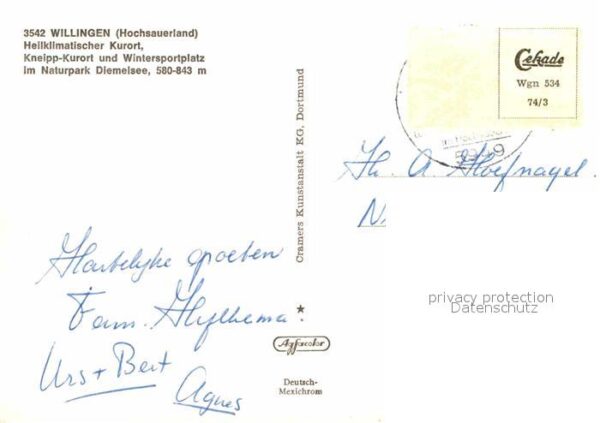 3542 WILLINGEN (Hochsauerland)
Heilklimatischer Kurort,
Kneipp-Kurort und Wintersportplatz
im Naturpark Diemelsee, 580-843 m
Cekade
Wgn 534
74/3
5949
A. Hoefnagel.
N.
Cramers Kunstanstalt KG, Dortmund
Hartelijke groeten
Fam.
Urs + Bert
Agnes
Agfacolor
Deutsch-
Mexichrom
privacy protection
Datenschutz